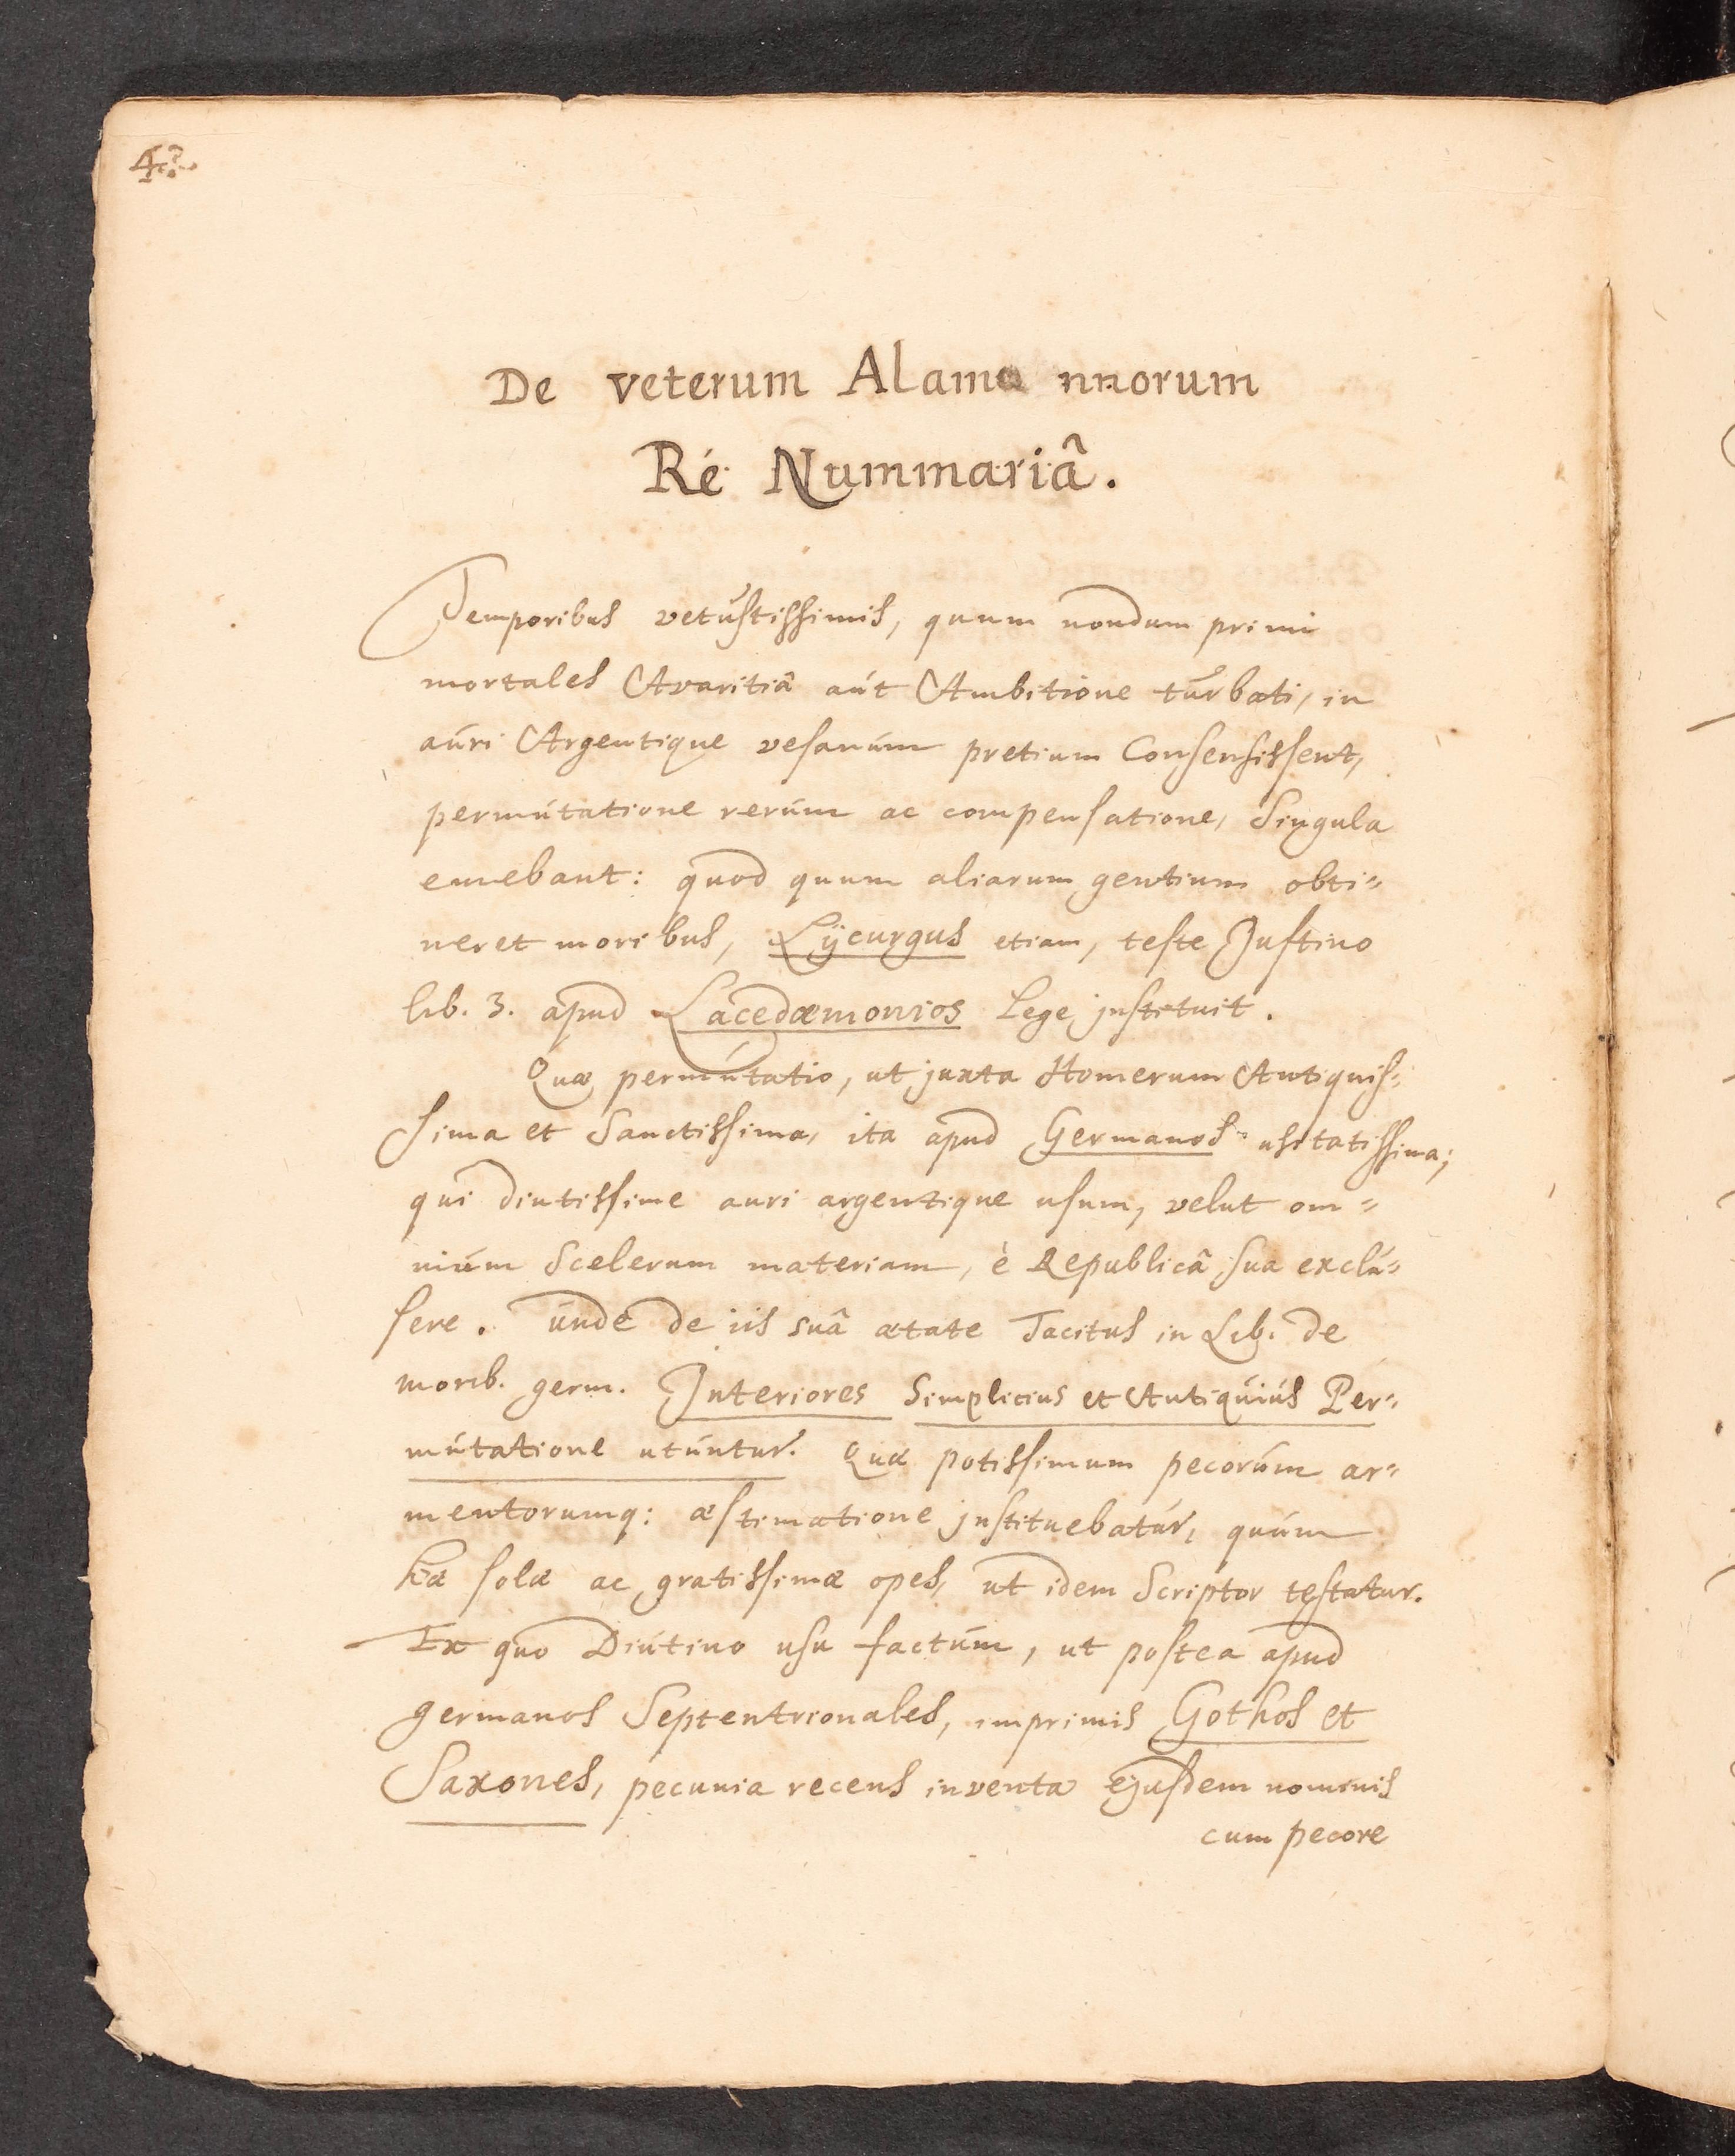 De veterum Alama nnorum
Ré Nummariâ.
Temporibus vetustissimis, quum nondum primi
mortales Avaritiâ aút Ambitione túrbati, in
aúri Argentique vesanúm pretium Consensissent,
permútatione rerúm ac compensatione, Singula
emebant: quod quum aliarum gentium obti-
neret moribus, Lÿcurgus etiam, teste Justino
lib. 3. apud Lacedæmonios Lege jnstituit.
Quæ permútatio, ut juxta Homerum Antiquis-
sima et Sanctissima, ita apud Germanos usitatissima;
qui diutissime auri argentique usum, velut om-
niúm Scelerum materiam, è Republicâ sua exclú-
sere. únde de iis suâ ætate Tacitus in Lib. de
morib. germ. Jnteriores Simplicius et Antiquiús Per-
mútatione utúntur. Quæ potissimum pecorúm ar-
mentorumq: æstimatione jnstituebatúr, quúm
hæ solæ ac gratissimæ opes, ut idem Scriptor testatur.
Ex quo Diútino usu factúm, ut postea apud
germanos Septentrionales, imprimis Gothos et
Saxones, pecunia recens inventa ejusdem nominis
cum pecore